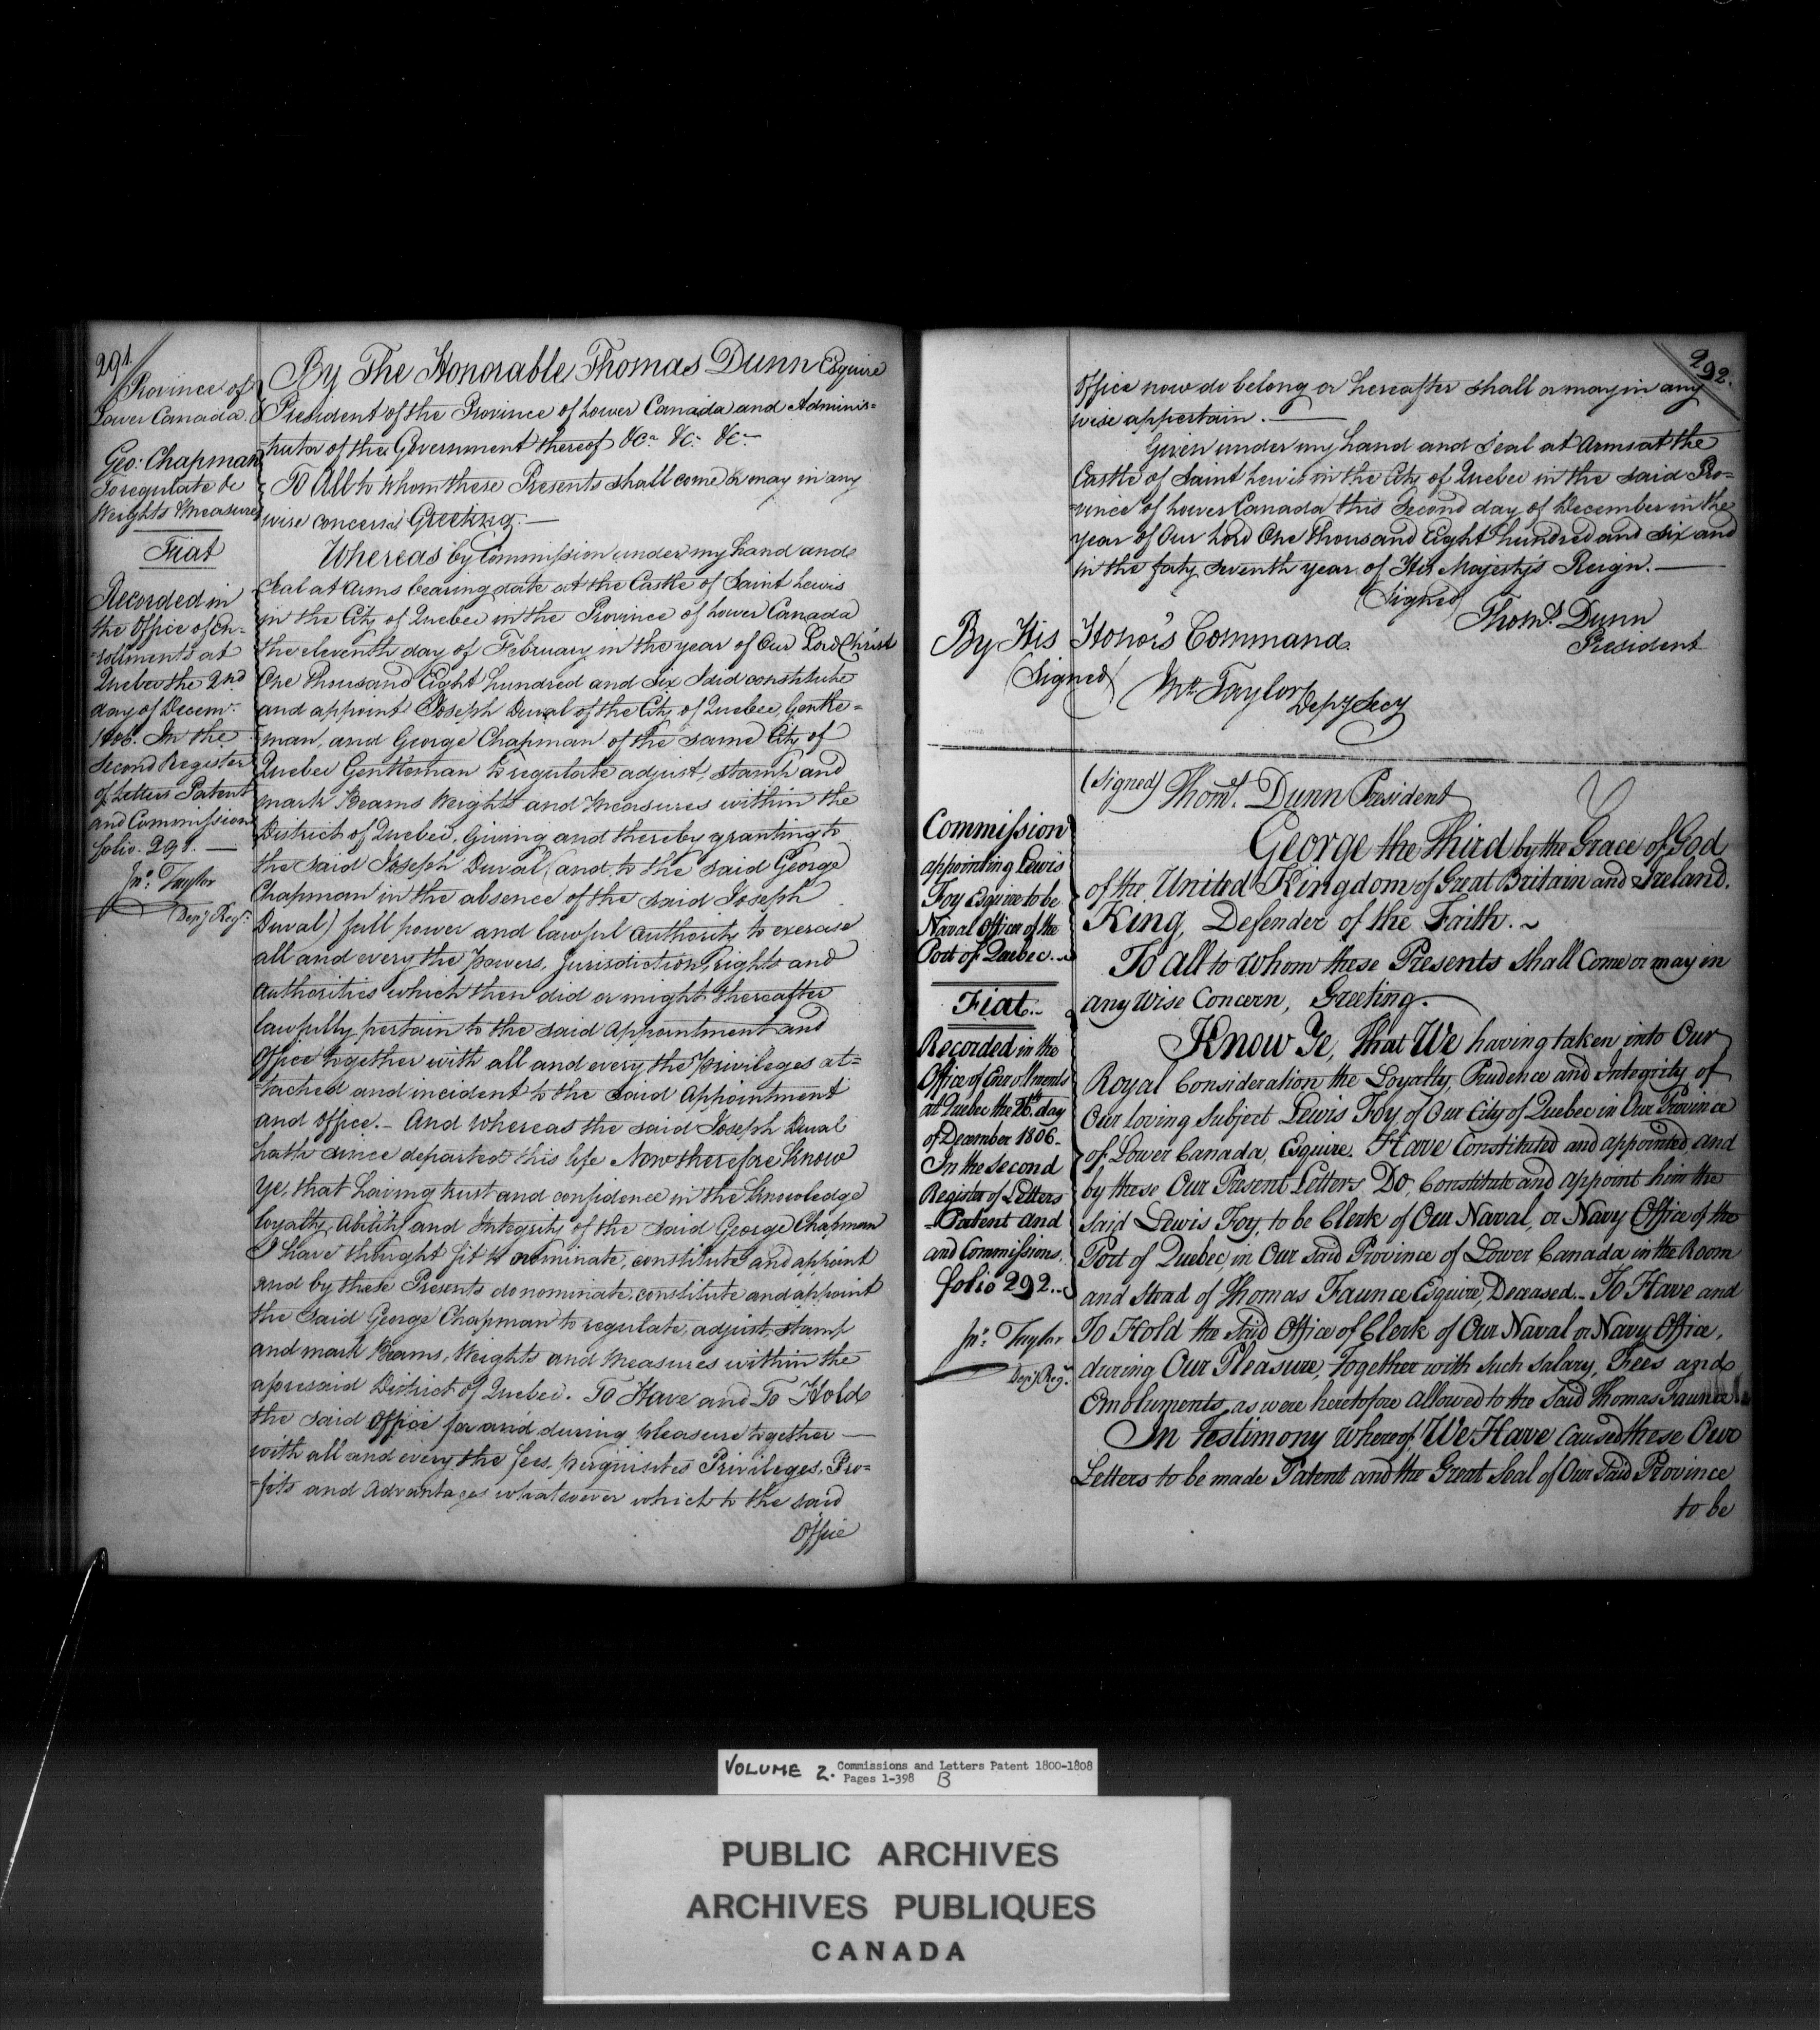 291
Province of
Lower Canada.
Geo: Chapman
to regulate &c
Weights Measures
Fiat
Recorded in
the Office of En-
-rollments at
Quebec the 2nd
day of Decemr.
1806. In the
Second Register
of Letters Patent
and Commissions
folio. 291. —
Jno: Taylor
Depy Regr.
By The Honorable Thomas Dunn Esquire
President of the Province of Lower Canada and Adminis=
-trator of the Government thereof &c. &c. &c.—
To All to whom these Presents shall come or may in any
wise concern Greeting.—
Whereas by Commission under my hand and
Seal at Arms bearing date at the Castle of Saint Lewis
in the City of Quebec in the Province of Lower Canada
the eleventh day of February in the year of Our Lord Christ
One Thousand Eight hundred and Six I did constitute
and appoint Joseph Duval of the City of Quebec, Gentle=
man, and George Chapman of the same City of
Quebec Gentleman to regulate adjust, stamp and
mark Beams Weights and Measures within the
District of Quebec. Giving and thereby granting to
the said Joseph Duval (and to the said George
Chapman in the absence of the said Joseph
Duval) full power and lawful authority to exercise
all and every the powers, Jurisdiction, rights and
authorities which then did or might thereafter
lawfully pertain to the said appointment and
Office together with all and every the privileges at=
-tached and incident to the said Appointment
and Office. — And Whereas the said Joseph Duval
hath since departed this life Now therefore know
Ye, that having trust and confidence in the knowledge
loyalty, ability and Integrity of the said George Chapman
I have thought fit to nominate, constitute and appoint
and by these Presents do nominate, constitute and appoint
the said George Chapman to regulate, adjust, stamp
and mark Beams, Weights and Measures within the
aforesaid District of Quebec. To Have and To Hold
the said Office for and during pleasure together —
with all and every the fees, perquisites Privileges, Pro=
-fits and Advantages whatsoever which to the said
Office
292.
Office now do belong or hereafter shall or may in any
wise appertain. —
Given under my hand and Seal at Arms at the
Castle of Saint Lewis in the City of Quebec in the said Pro=
-vince of Lower Canada this Second day of December in the
year of Our Lord One thousand Eight hundred and Six and
in the forty seventh year of His Majesty's Reign. —
(Signed) Thoms. Dunn
President
By His Honor's Command
(Signed) Taylor Depy Secy
(Signed) Thoms. Dunn President
Commission
appointing Lewis
Foy Esquire to be
Naval Officer of the
Port of Quebec. ~
Fiat.~
Recorded in the
Office of Enrollments
at Quebec the 26th. day
of December 1806.-
In the Second
Register of Letters
-Patent and
and Commissions.
folio 292..
Jno: Taylor
Depy Regr.
George the Third by the Grace of God
of the United Kingdom of Great Britain and Ireland.
King, Defender of the Faith. ~
To all to whom these Presents Shall Come or may in
any Wise Concern, Greeting. —
Know Ye, That We having taken into Our
Royal Consideration the Loyalty, Prudence and Integrity of
Our loving Subject Lewis Foy of Our City of Quebec in Our Province
of Lower Canada, Esquire. Have Constituted and appointed, and
by these Our Present Letters Do, Constitute and appoint him the
said Lewis Foy, to be Clerk of Our Naval, or Navy Office of the
Port of Quebec, in Our said Province of Lower Canada in the Room
and Stead of Thomas Faunce Esquire, Deceased.— To Have and
To Hold the Said Office of Clerk of Our Naval or Navy Office,
during Our Pleasure, Together with Such Salary, Fees and
Emoluments, as were heretofore allowed to the Said Thomas Faunce.
In Testimony whereof We Have Caused these Our
Letters to be made Patent and the Great Seal of Our Said Province
to be
VOLUME 2. Commissions and Letters Patent 1800-1808
Pages 1-398 B
PUBLIC ARCHIVES
ARCHIVES PUBLIQUES
CANADA